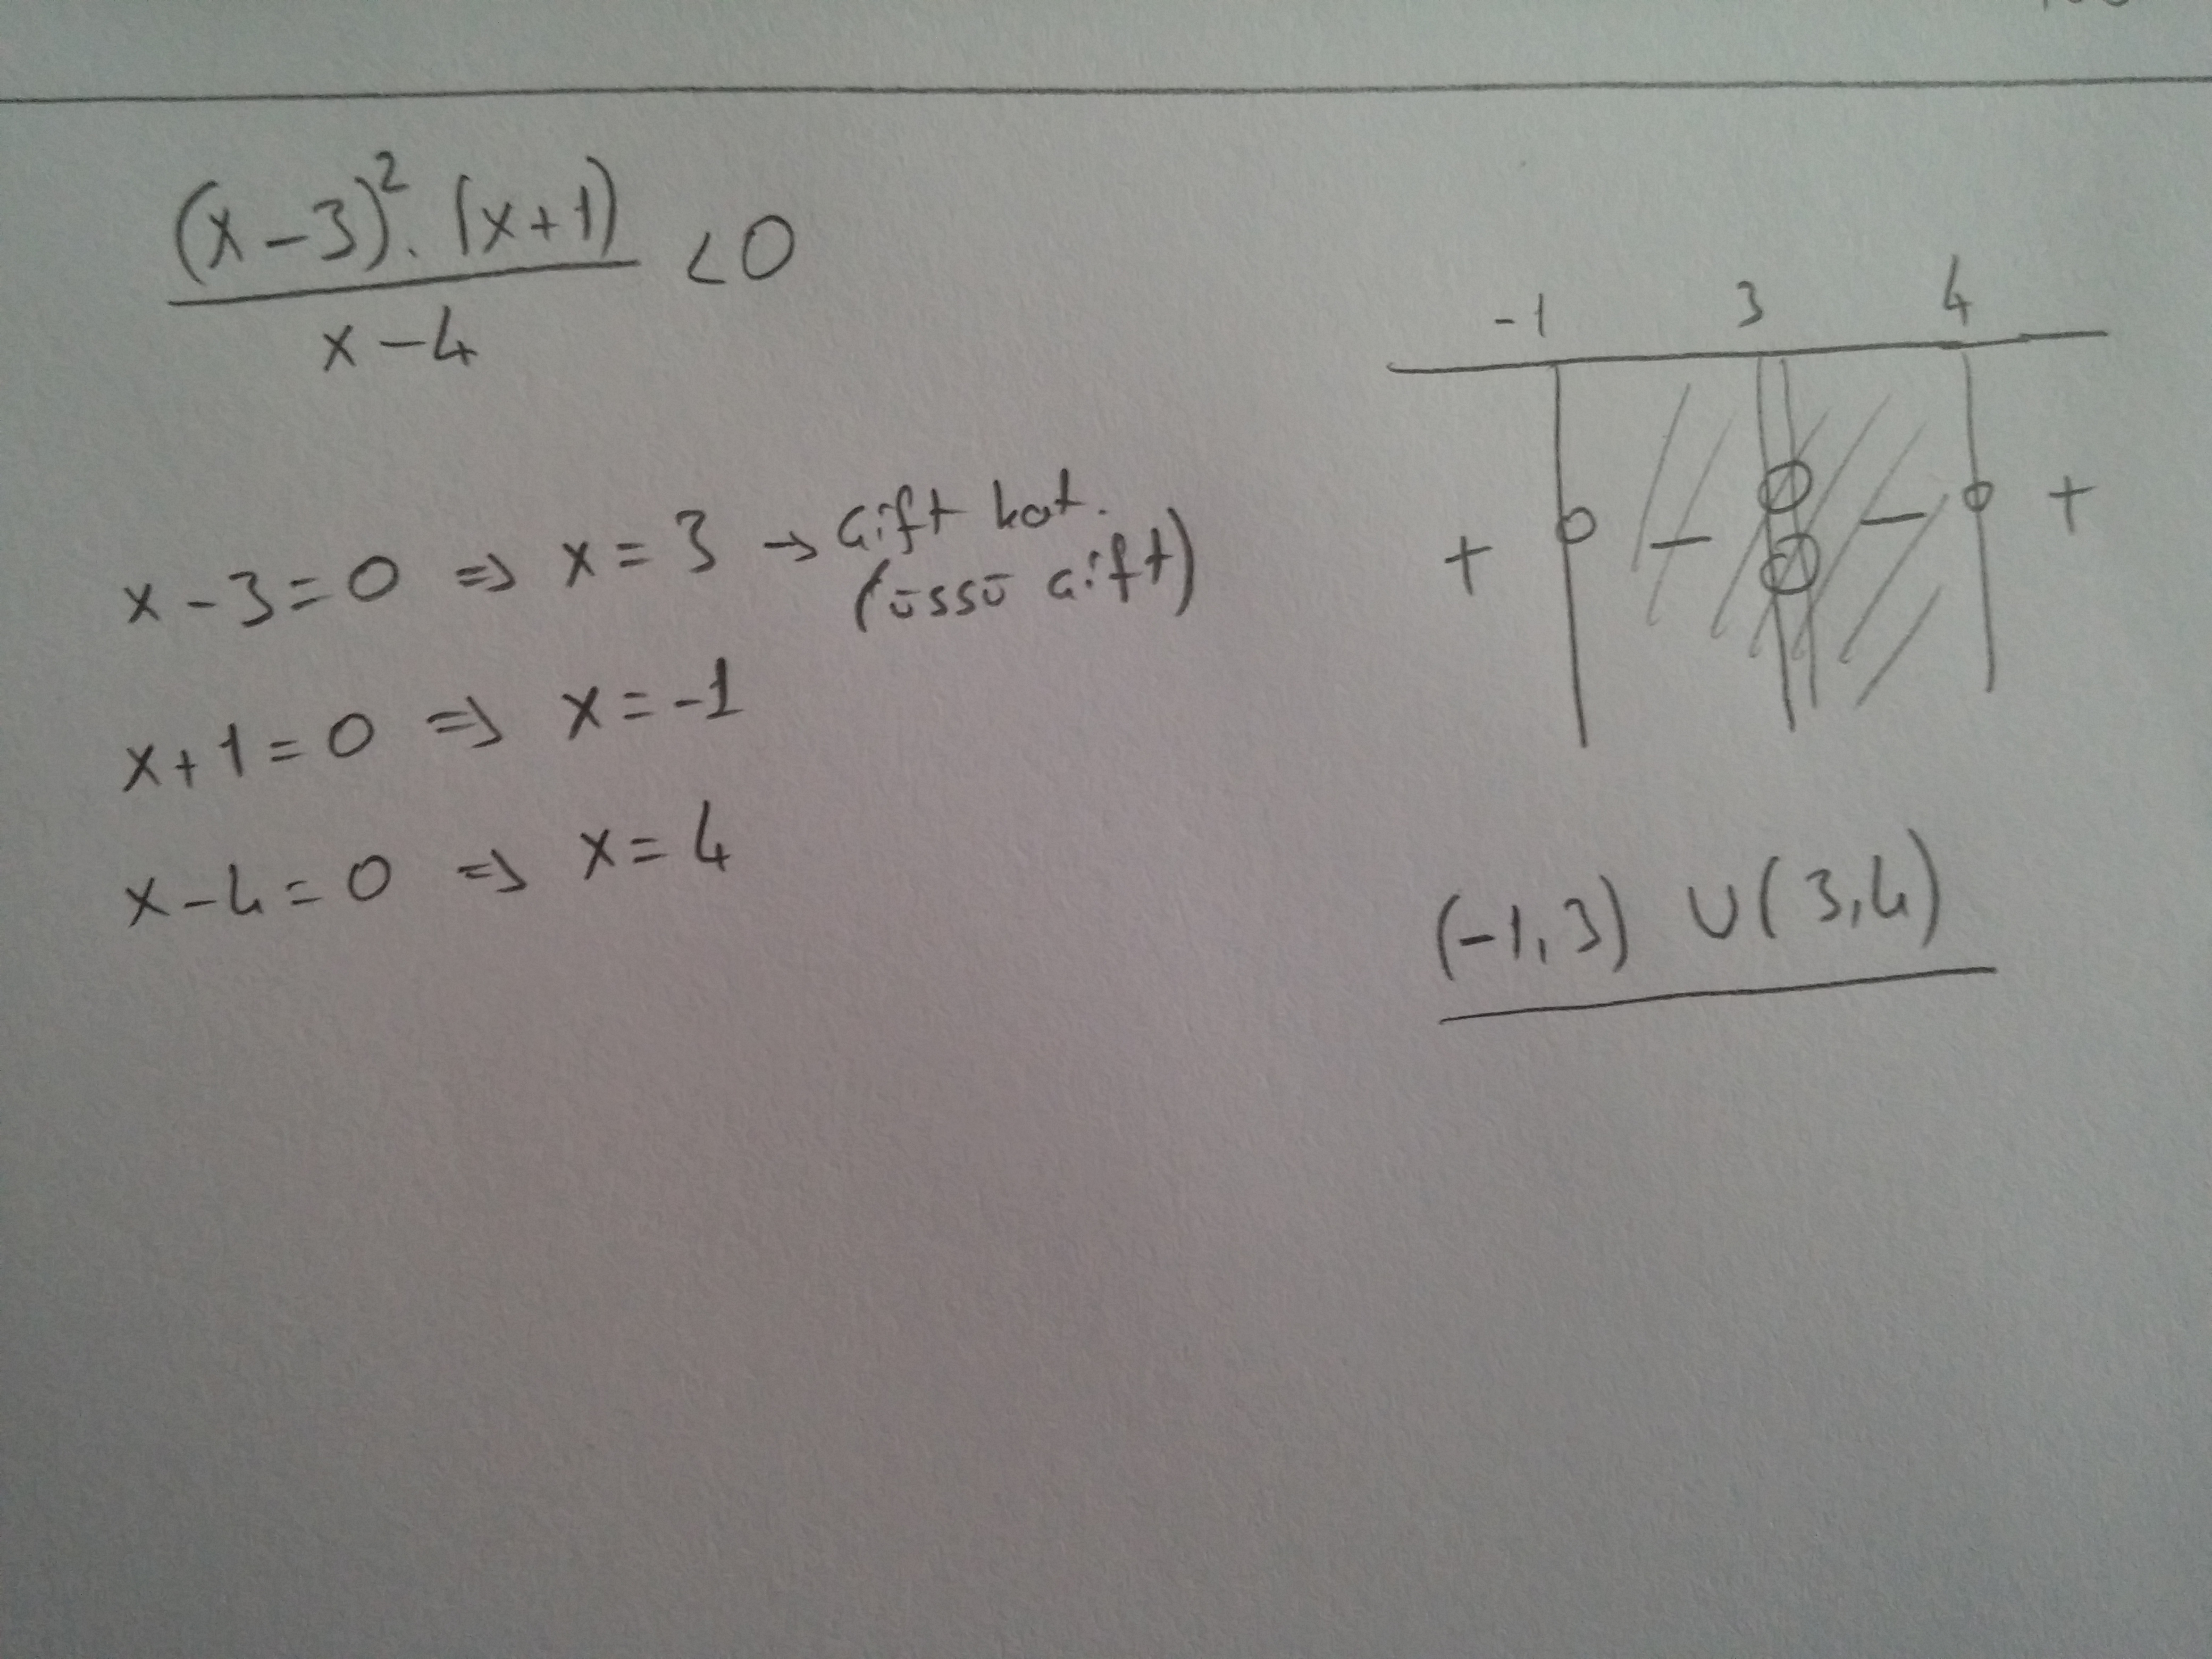 (x-3)². (x+1)
x-4
<0
x-3=0 => x=3 → çift kat.
(üssü çift)
x+1=0 => x=-1
x-4=0 => x=4
-1 3 4
+ - - +
(-1,3) ∪(3,4)